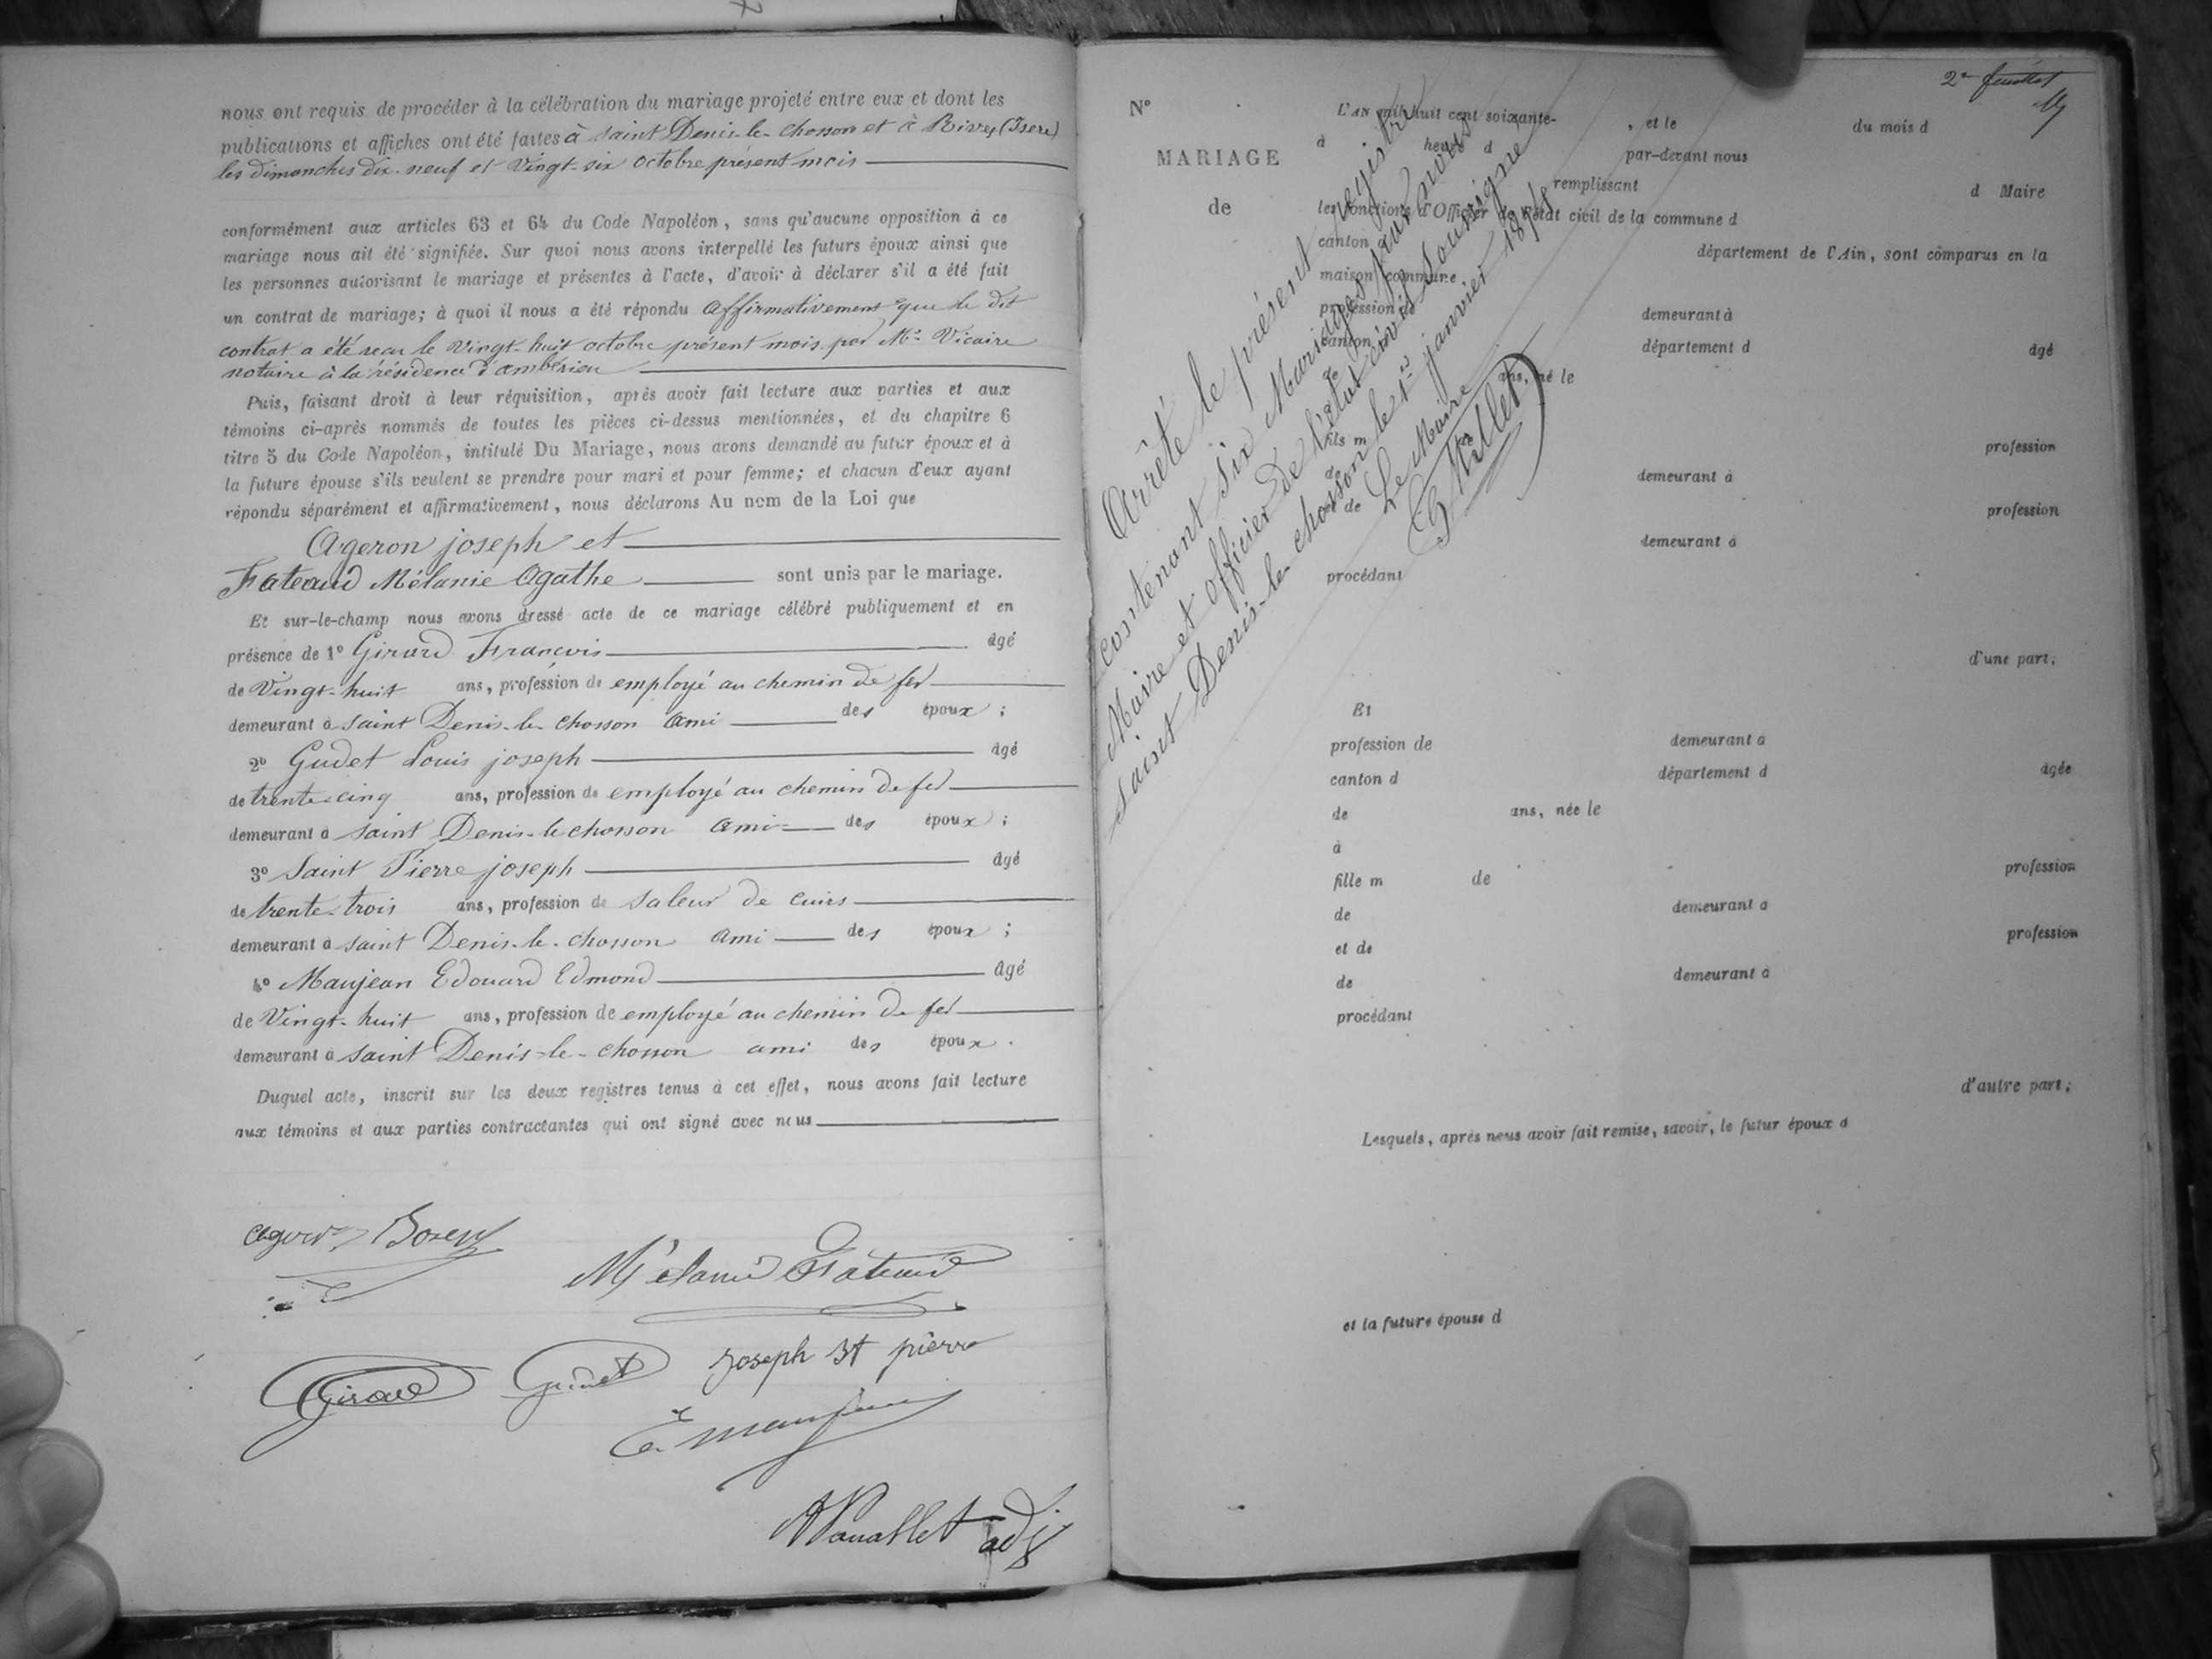 nous ont requis de procéder à la célébration du mariage projeté entre eux et dont les
publications et affiches ont été faites à saint Denis-le-chosson et à Rives (Isere)
les dimanches dix-neuf et Vingt-six octobre présent mois
conformément aux articles 63 et 64 du Code Napoléon, sans qu'aucune opposition à ce
mariage nous ait été signifiée. Sur quoi nous avons interpellé les futurs époux ainsi que
les personnes autorisant le mariage et présentes à l'acte, d'avoir à déclarer s'il a été fait
un contrat de mariage; à quoi il nous a été répondu affirmativement que le dit
contrat a été recu le Vingt-huit octobre présent mois par Me Vicaire
notaire à la résidence d'ambérieu
Puis, faisant droit à leur réquisition, après avoir fait lecture aux parties et aux
témoins ci-après nommés de toutes les pièces ci-dessus mentionnées, et du chapitre 6
titre 5 du Code Napoléon, intitulé Du Mariage, nous avons demandé au futur époux et à
la future épouse s'ils veulent se prendre pour mari et pour femme; et chacun d'eux ayant
répondu séparément et affirmativement, nous déclarons Au nom de la Loi que
Ageron joseph et
Fateaud Mélanie Agathe sont unis par le mariage.
Et sur-le-champ nous avons dressé acte de ce mariage célébré publiquement et en
présence de 1º Girard François âgé
de Vingt-huit ans, profession de employé au chemin de fer
demeurant à saint Denis-le-chosson ami des époux ;
2º Gudet Louis joseph âgé
de trente-cinq ans, profession de employé au chemin de fer
demeurant à saint Denis-le chosson ami des époux ;
3º Saint Pierre joseph âgé
de trente-trois ans, profession de saleur de cuirs
demeurant à saint Denis-le-chosson ami des époux ;
4º Maujean Edouard Edmond âgé
de Vingt-huit ans, profession de employé au chemin de fer
demeurant à saint Denis-le-chosson ami des époux .
Duquel acte, inscrit sur les deux registres tenus à cet effet, nous avons fait lecture
aux témoins et aux parties contractantes qui ont signé avec nous
Mélanie Fateaud
Girard Gudet Joseph St pierre
E. Maujean
adj
2e feuillet
Nº
MARIAGE
de
L'AN mil huit cent soixante- , et le du mois d
à heure d par-devant nous
remplissant d Maire
les fonctions d'Officier de l'état civil de la commune d
canton département de l'Ain, sont comparus en la
maison commune
profession de demeurant à
canton département d âgé
de ans, né le
fils m profession
de demeurant à
et de profession
demeurant à
procédant
d'une part;
Arrêté le présent registre
contenant six Mariages par nous
Maire et officier de l'état civil soussigné
saint Denis-le-chosson le 1er janvier 1874
Le Maire
Et
profession de demeurant à
canton d département d âgée
de ans, née le
à
fille m de profession
de demeurant à
et de profession
de demeurant à
procédant
d'autre part;
Lesquels, après nous avoir fait remise, savoir, le futur époux d
et la future épouse d